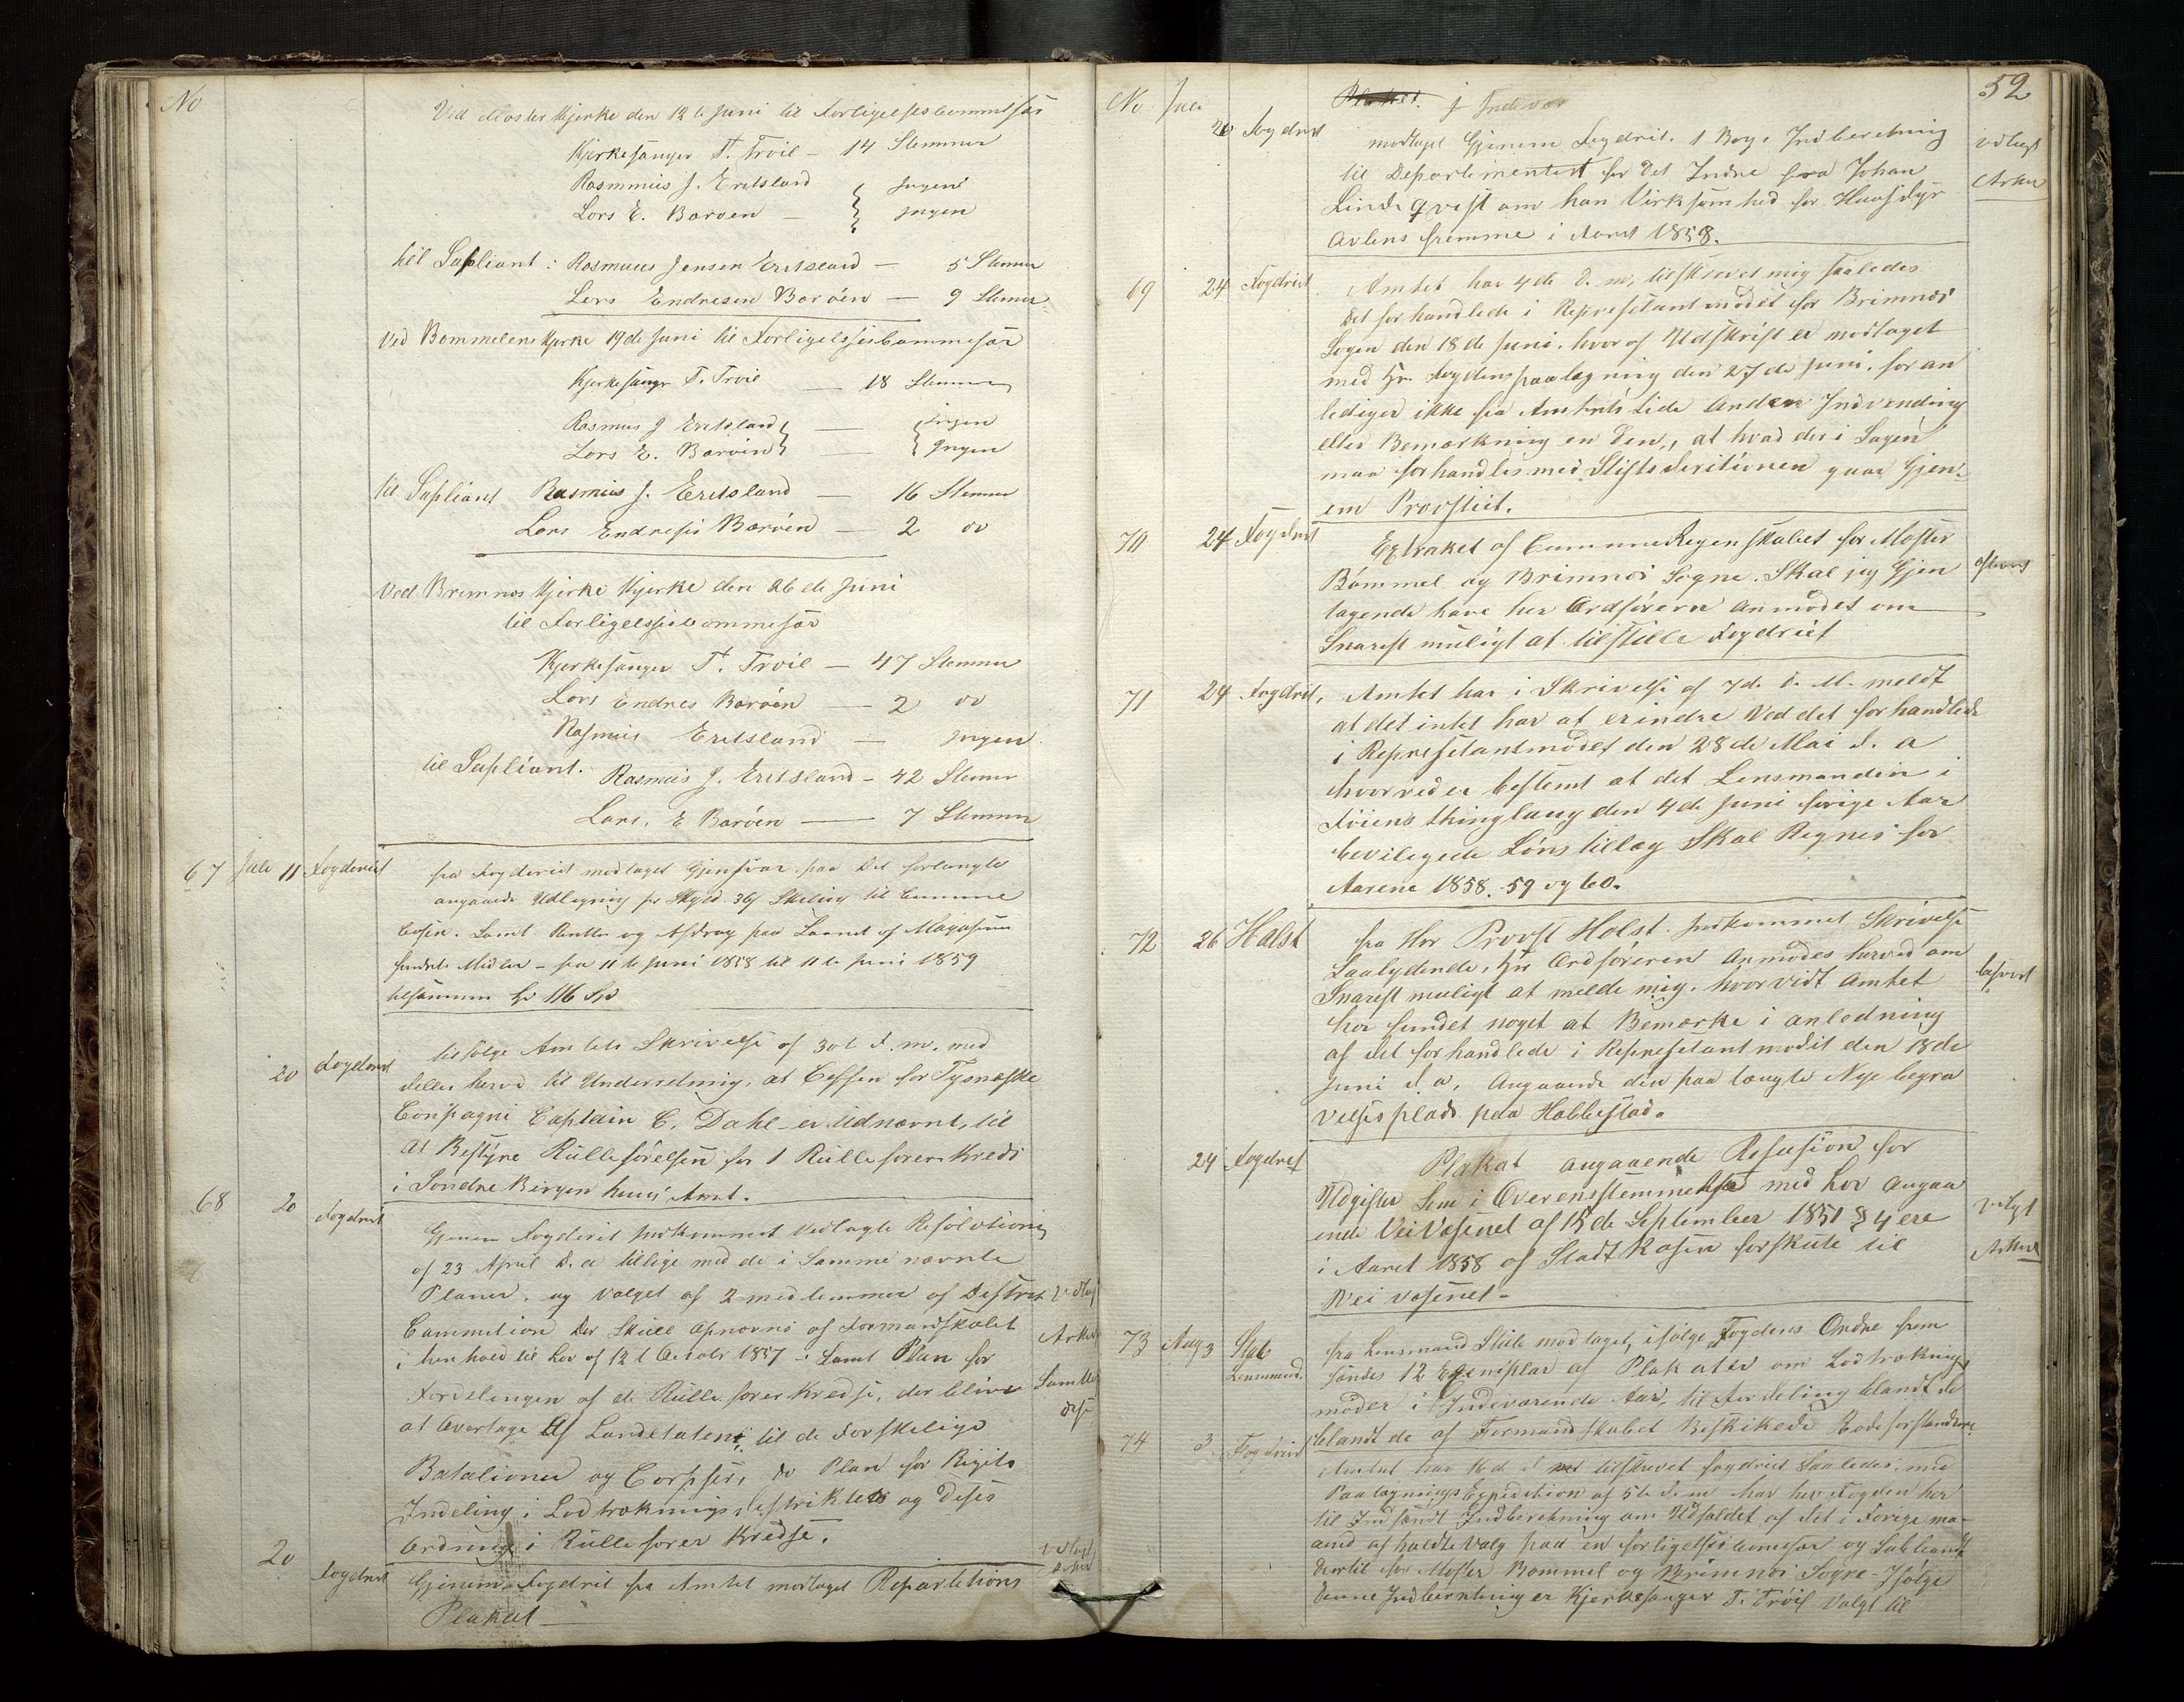 No
Ved Moster Kjerke den 12te Juni til Forligelsescommisær
Kjerkesanger T. Troil — 14 Stemmer
Rasmmus J. Eritsland Ingen
Lars E. Barøen — Ingen
til Supliant: Rasmus Jensen Eritsland — 5 Stemmer
Lars Endresen Barøen — 9 Stemer
Ved Bommelens Kjerke 19de Juni til Forligelsescommesær
Kjerkesanger T. Troil — 18 Stemmer
Rasmus J Eritsland — Ingen
Lars E. Barøen — Ingen
til Supliant Rasmus J. Eritsland — 16 Stemmer
Lars Endresen Barøen — 2 do
Ved Bremnes Kjerke Kjerke den 26de Juni
til Forligelsescommesær
Kjerkesanger T. Troil — 47 Stemmer
Lars Endres Barøen — 2 do
Rasmus Eritsland — Ingen
til Supliant. Rasmus J. Eritsland — 42 Stemer
Lars. E Barøen — 7 Stemmer
67 Juli 11 Fogderiet fra Fogderiet modtaget Gjensvar paa Det forlangte
angaaende Udlegning pr Skyld 36 Skeling til Commune
Casen. Samt Rentter og Afdrag paa Laanet af Magasins
fundets Midler – fra 11te Juni 1858 til 11te Juni 1859
tilsammen 116 Spd
20 Fogderiet tilfølge Amtets Skrivelse af 30te f. m. med
deles herved til Underretning, at Cheffen for Tysnæske
Conpagni Captain C. Dahl er Udnævnt, til
at Bestyre Rulleførelsen for 1 Rulleforer Kreds
i Søndre Bergen huus Amt.
68 20 Fogderiet Gjenem Fogderiet Indkommet vedlagte Resolution
af 23 April d. a tillige med de i Samme nævnte
Planer. og Valget af 2 medlemmer af Destrekt
Commetion der Skull Opnævnes af Formandskabet
i henhold til Lov af 12t Octobr 1857 – Samt Plan for
Fordelingen af de Rulleforer Kredse, der blive
at Overtage Af Landetaten til de Forskelige
Batalioner og Corpser, do Plan for Rigets
Indeling i Lodtræknings destrikter og Dises
Ordning i Rulleforer Kredse.
Vedlagt
Arkivet
Samtlle
dise
20 Fogderiet Gjenem Fogdriet fra Amtet modtaget Repartitions
Plakat —
Vedlagt
Arkivet
No Juli 52
Plakat. f Indevær
20 Fogdriet modtaget Gjenem Fogdriet. 1 Bog. Indberetning
til Departementet for det Indre fra Johan
Lindeqvist om han Virksomhed for Huusdyr
avlens fremme i Aaret 1858.
vedlagt
Arkiv
69 24 Fogdriet Amtet har 4de d. m, tilskrevet mig saaledes
Det forhandlede i Represetantmødet for Brimnes
Sogen den 18de Juni. hvoraf Udskrift er modtaget
med Hr. Fogdens paategning den 27de Juni. for an
lediger ikke fra Amtets Side anden Indvending
eller Bemærkning en Den,, at hvad der i Sagen
maa forhandles med Stiftsderitionen gaar Gjen-
em Provstiet.
70 24 Fogdriet Extraket af CommuneRegenskabet for Moster
Bømmel og Brimnes Sogne. Skal jeg Gjen
tagende have her Ordføreren anmodet om
Snarest muligt at tilstille Fogdriet
71 24 Fogdriet, Amtet har i Skrivelse af 7de d. M. meldt
at det intet har at erindre Ved det forhandlede
i Represetantmødet den 28de Mai d. a
hvorved er bestemt at det Lensmanden i
Føiens thinglaug den 4de Juni førige Aar
bevilegede Lønstillæg Skal Regnes for
Aarene 1858. 59 og 60.
72 26 Halst fra Her Provst Holst. Indkommet Skrivelse
Saalydende, Hr Ordføreren anmodes herved om
Snarest muligt at melde mig. hvorvidt Amtet
har fundet noget at Bemærke i anledning
af det forhandlede i Represetantmødet den 18de
Juni d a, Angaaende den paa tængte Nye begra
velsesplads paa Habbestad.
besvaret
24 Fogdriet Plakat angaaende Refusion for
Udgifter Som i Overensstemmelse med Lov angaa
ende Veivæsenet af 15de September 1851 § 4 ere
i Aaret 1858 af Stadtkasen forskute til
Vei væsenet.
vedlagt
Arkivet
73 Aug 3 Stub
Lensmand. fra Lensmand Stub modtaget, ifølge Fogdens Ordre frem
sendes 12 Exemplar af Plakater om Lodtræknings
møder i Indeværende Aar, til Fordeling blandt de
blandt de af Formandskabet Beskikede Rodeforstandere
74 3 Fogdriet Amtet har 16d d tilskrevet fogdriet Saaledes, med
Paategnings Expedition af 5te d. m har her Fogden her
til Indsendt Indberetning om Udfaldet af det i Forige ma-
aned afholdte Valg paa en forligelsescomesær og Subliants
Dertil for Moster Bommel og Brimnes Sogne – Ifølge
denne Indberetning er Kjerkesanger T. Troil Valgt til